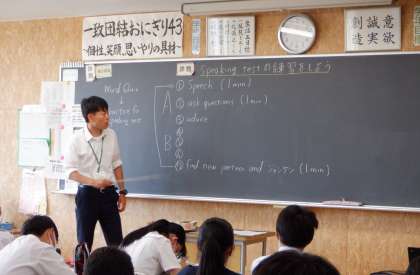 一致団結おにぎり43
~個性、笑顔、思いやりの具材~
誠意
創造
意欲
Speaking testの練習をしよう
Word Quiz
↓
practice for
speaking test
A
B
① Speech (1min)
② ask questions (1min)
③ advice
④
⑤
⑥
⑦ find new partner and ジャンケン (1min)